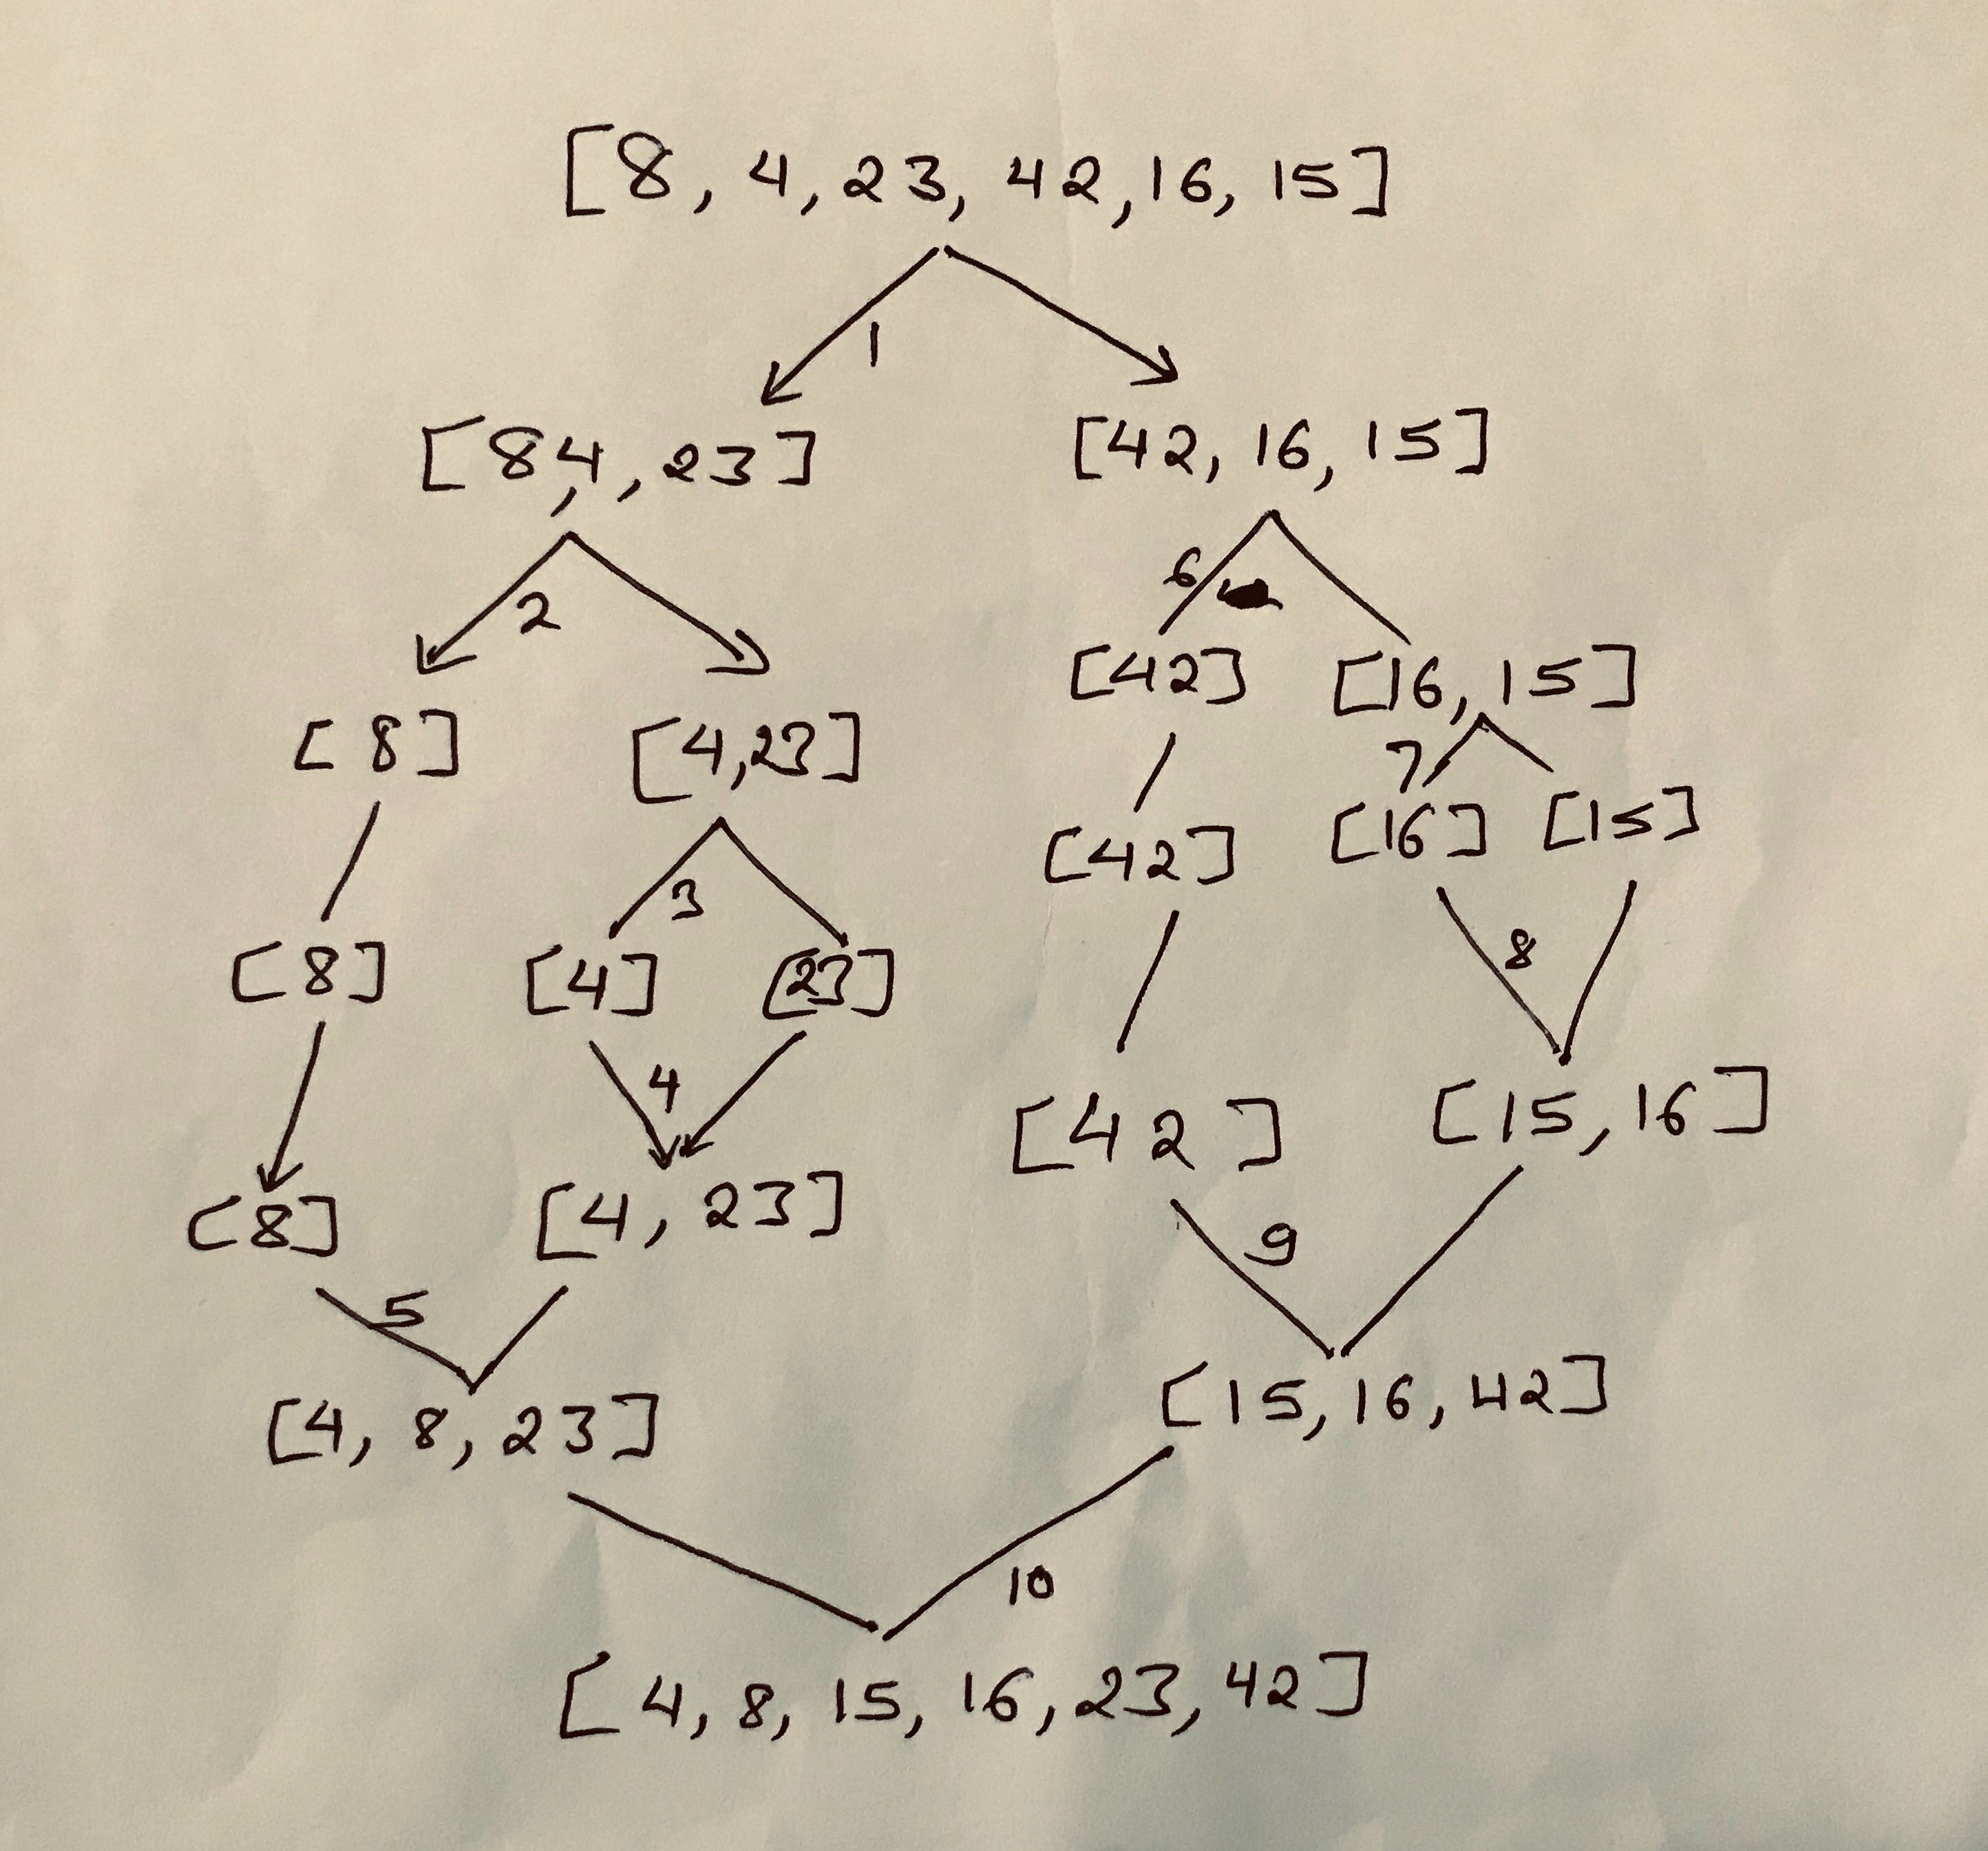 [8, 4, 23, 42, 16, 15]
1
[8,4,23] [42, 16, 15]
2 6
[42] [16, 15]
[8] [4,23] 7
[42] [16] [15]
3
[8] [4] [23] 8
4
[42] [15, 16]
[8] [4, 23]
5 9
[4, 8, 23] [15, 16, 42]
10
[4, 8, 15, 16, 23, 42]